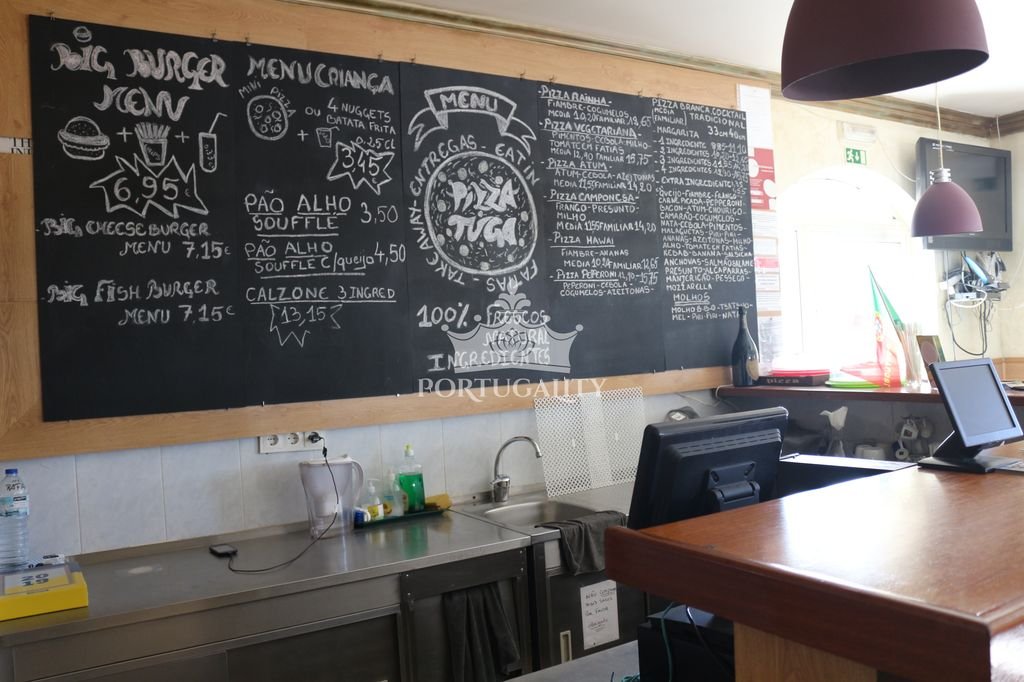 BIG BURGER
MENU
+ +
6,95€
BIG CHEESEBURGER
MENU 7,15€
BIG FISH BURGER
MENU 7,15€
MENU CRIANÇA
MINI PIZZA
OU 4 NUGGETS
BATATA FRITA
+ 0.25CL
3,45
PÃO ALHO 3,50
SOUFFLÉ
PÃO ALHO 4,50
SOUFFLE C/queijo
CALZONE 3 INGRED
13,15
MENU
TAKE AWAY-ENTREGAS-EAT IN
PIZZA
TUGA
100% FRESCOS
NATURAL
INGREDIENTES
PIZZA RAINHA-
FIAMBRE-COGUMELOS
MEDIA 10,20 FAMILIAR
PIZZA VEGETARIANA-
PIMENTOS-CEBOLA-MILHO
TOMATE EM FATIAS
MEDIA 12,40 FAMILIAR
PIZZA ATUM-
ATUM-CEBOLA-AZEITONA
MEDIA FAMILIAR 14,20
PIZZA CAMPONESA-
FRANGO-PRESUNTO-
MILHO
MEDIA FAMILIAR 14,20
PIZZA HAWAI
FIAMBRE-ANANAS
MEDIA FAMILIAR
PIZZA PEPERONI
PEPERONI-CEBOLA-
COGUMELOS-AZEITONAS-
PIZZA BRANCA COCKTAIL
MEDIA TRADICIONAL
FAMILIAR
MARGARITA 33cm 40cm
1 INGREDIENTE
2 INGREDIENTES
3 INGREDIENTES
4 INGREDIENTES
EXTRA INGREDIENTE
QUEIJO-FIAMBRE-FRANGO-
CARNE PICADA-PEPPERONI
BACON-ATUM-CHOURIÇO-
CAMARÃO-COGUMELOS-
NATA-CEBOLA-PIMENTOS-
MALAGUETAS-PIRI-PIRI-
ANANAS-AZEITONAS-MILHO-
ALHO-TOMATE EM FATIAS-
KEBAB-BANANA-SALSICHA
ANCHOVAS-SALMÃO
PRESUNTO-ALCAPARRAS-
MANJERICÃO-PESSEGO
MOZZARELLA
MOLHOS
MEL-PIRI-PIRI-NATA
PORTUGALITY
pizza